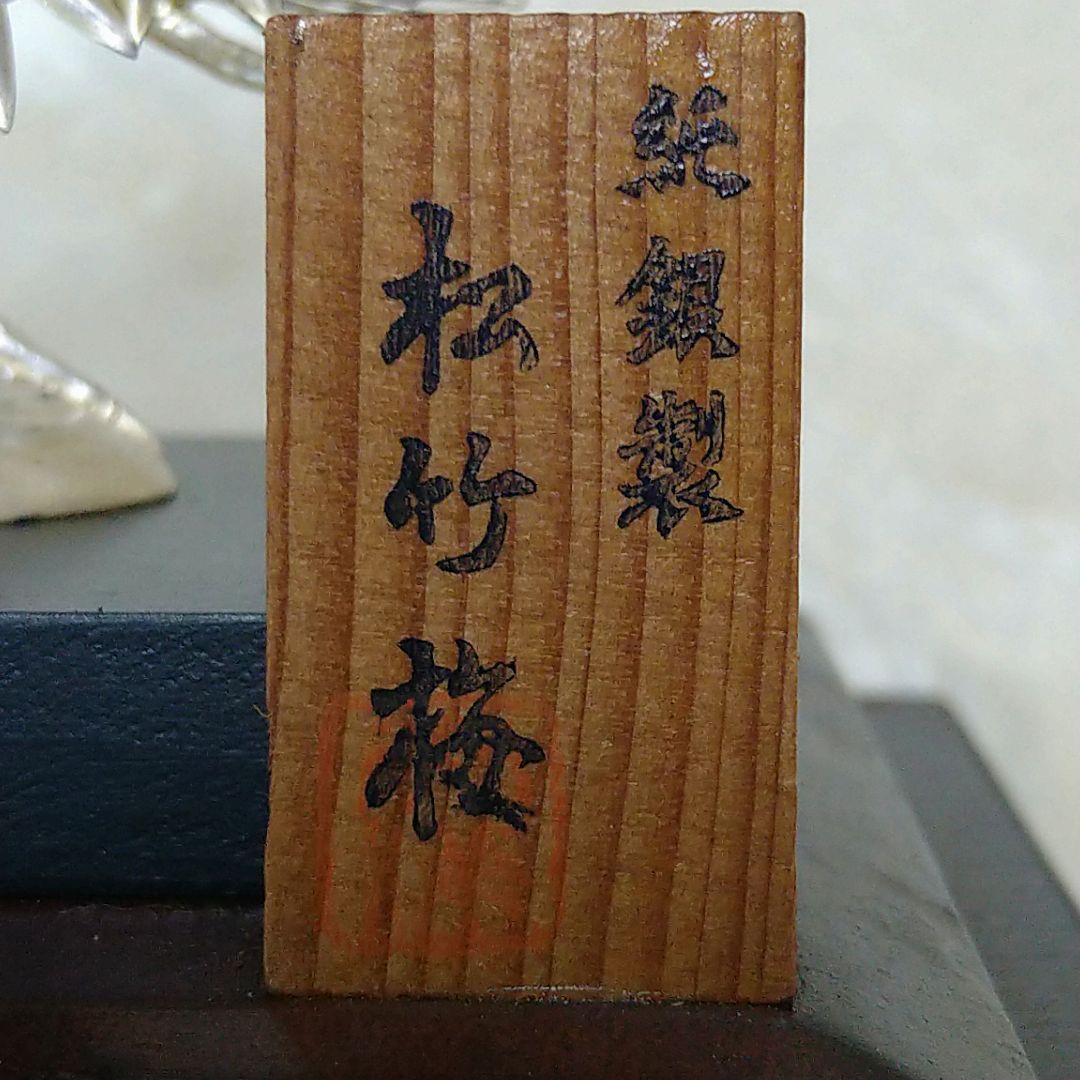 純銀製
松竹梅